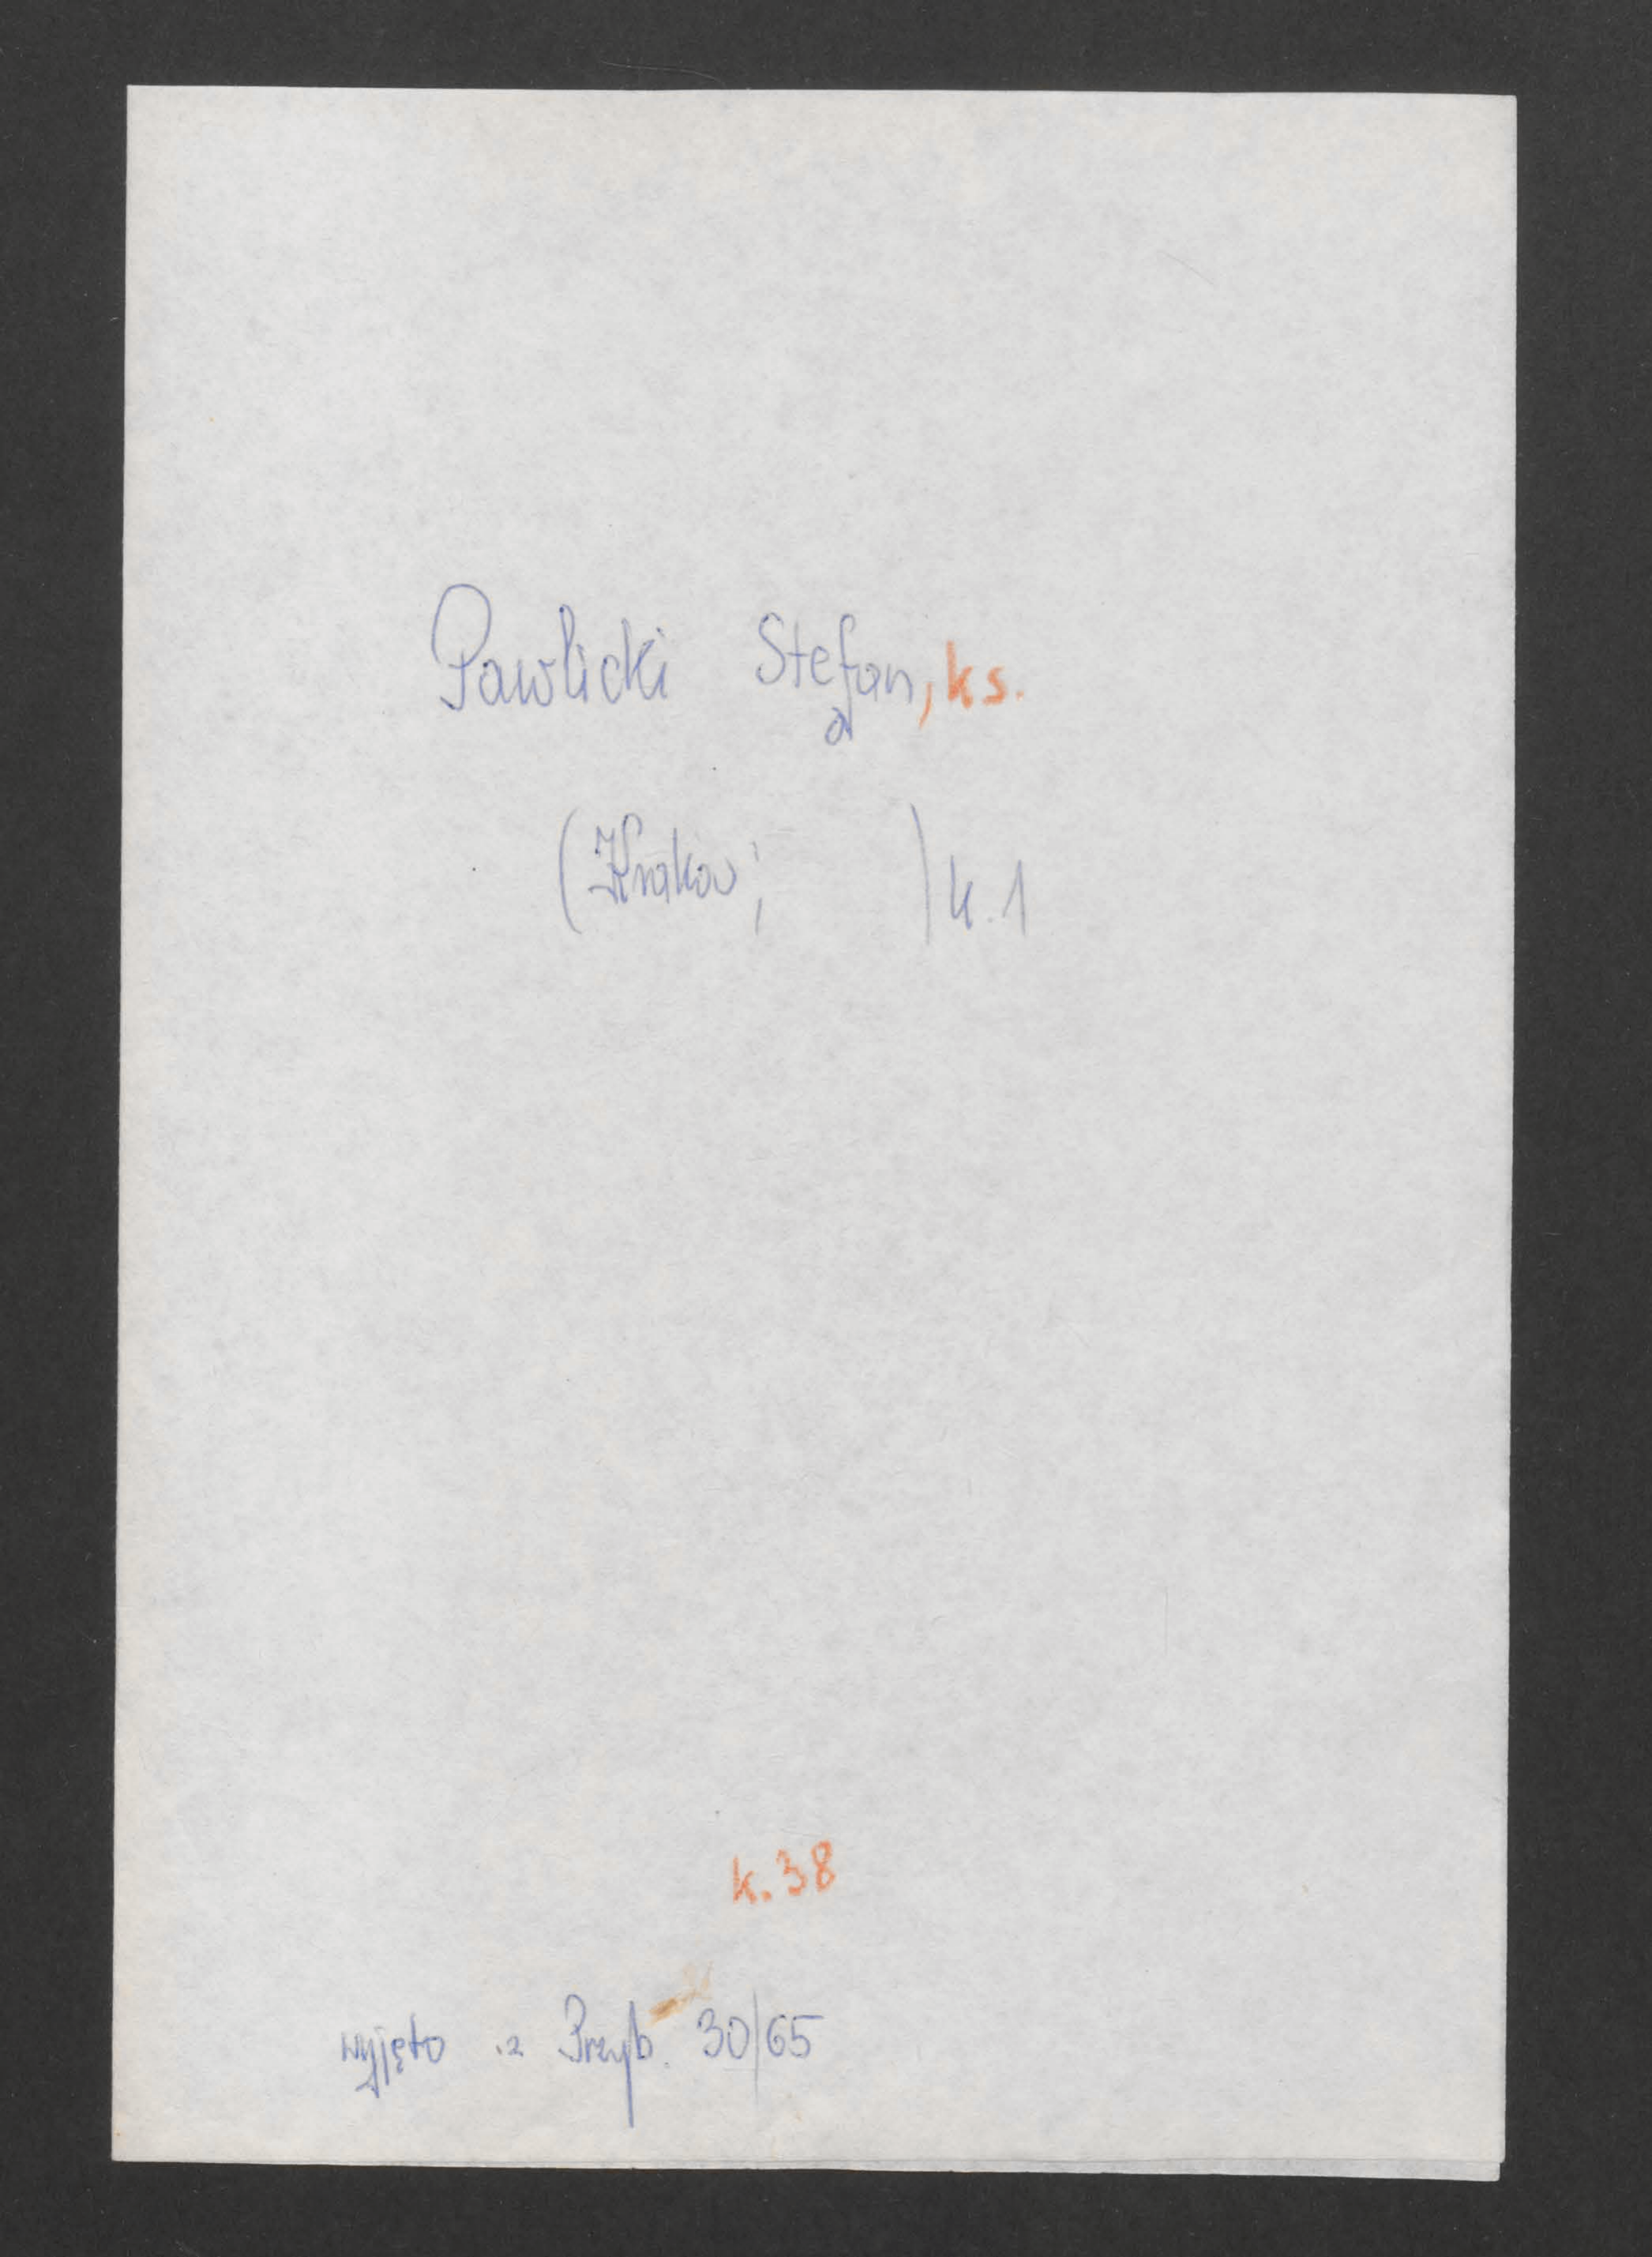 Pawlicki Stefan, ks.
(Kraków; ) k. 1
k. 38
wyjęto z Przyb. 30/65